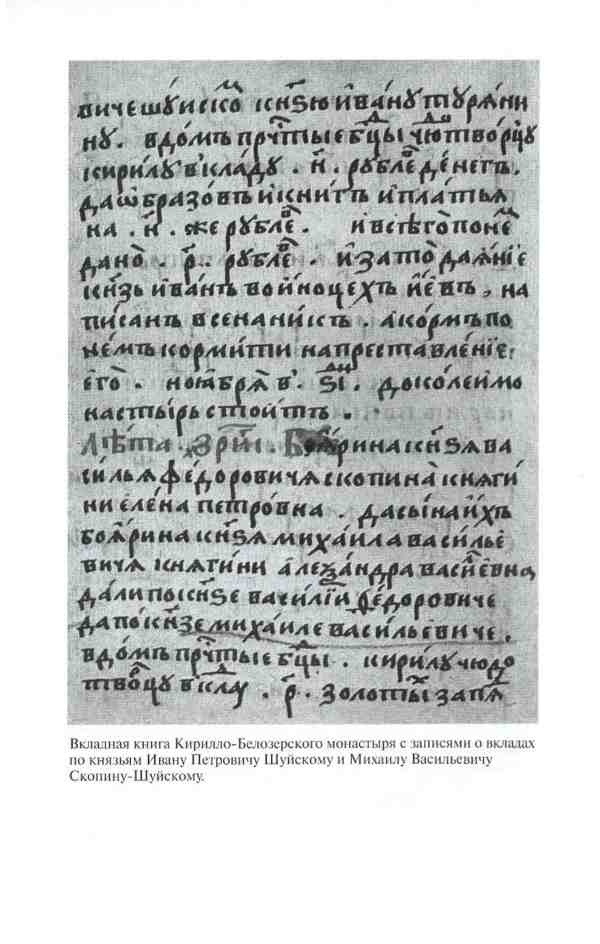 вичешуиско кн҃ѕю ива́ну туря́ни
ну. вдомъ пречт҃ые бц҃ы чю́творцу
кири́лу вкла́ду. н҃. рубле́в де́негъ.
да ѡбразо́въ и кни́гъ и пла́тья
на. н҃. же рубле́в. и всего̀ по нем
дано̀. р҃. рубле́в. и за то̀ дая́нїе
кн҃зь ива́нъ во и́ноцехъ и́евъ, на
пи́санъ в сенани́съ. а ко́рмъ по
не́мъ корми́ти на преставле́нїе
его̀. ноя́бря в҃. ѕ҃і. доко́ле и мо
насты́рь стои́тъ.
Лѣ́та. ҂зри҃і. Боя́рина кн҃ѕя ва
си́лья фе́доровичя скопина княги́
ни еле́на петро́вна. да сы́на и́хъ
боя́рина кн҃ѕя миха́ила васи́лье
вичя княги́ни алеѯа́ндра васи́левна
да́ли по кн҃ѕе ва́силїи фе́доровиче
да по кн҃зе миха́иле васи́льевиче.
вдо́мъ пречт҃ые бц҃ы. кири́лу чюдо
тво́рцу вкла. р҃. золоты́х за пя
Вкладная книга Кирилло-Белозерского монастыря с записями о вкладах
по князьям Ивану Петровичу Шуйскому и Михаилу Васильевичу
Скопину-Шуйскому.